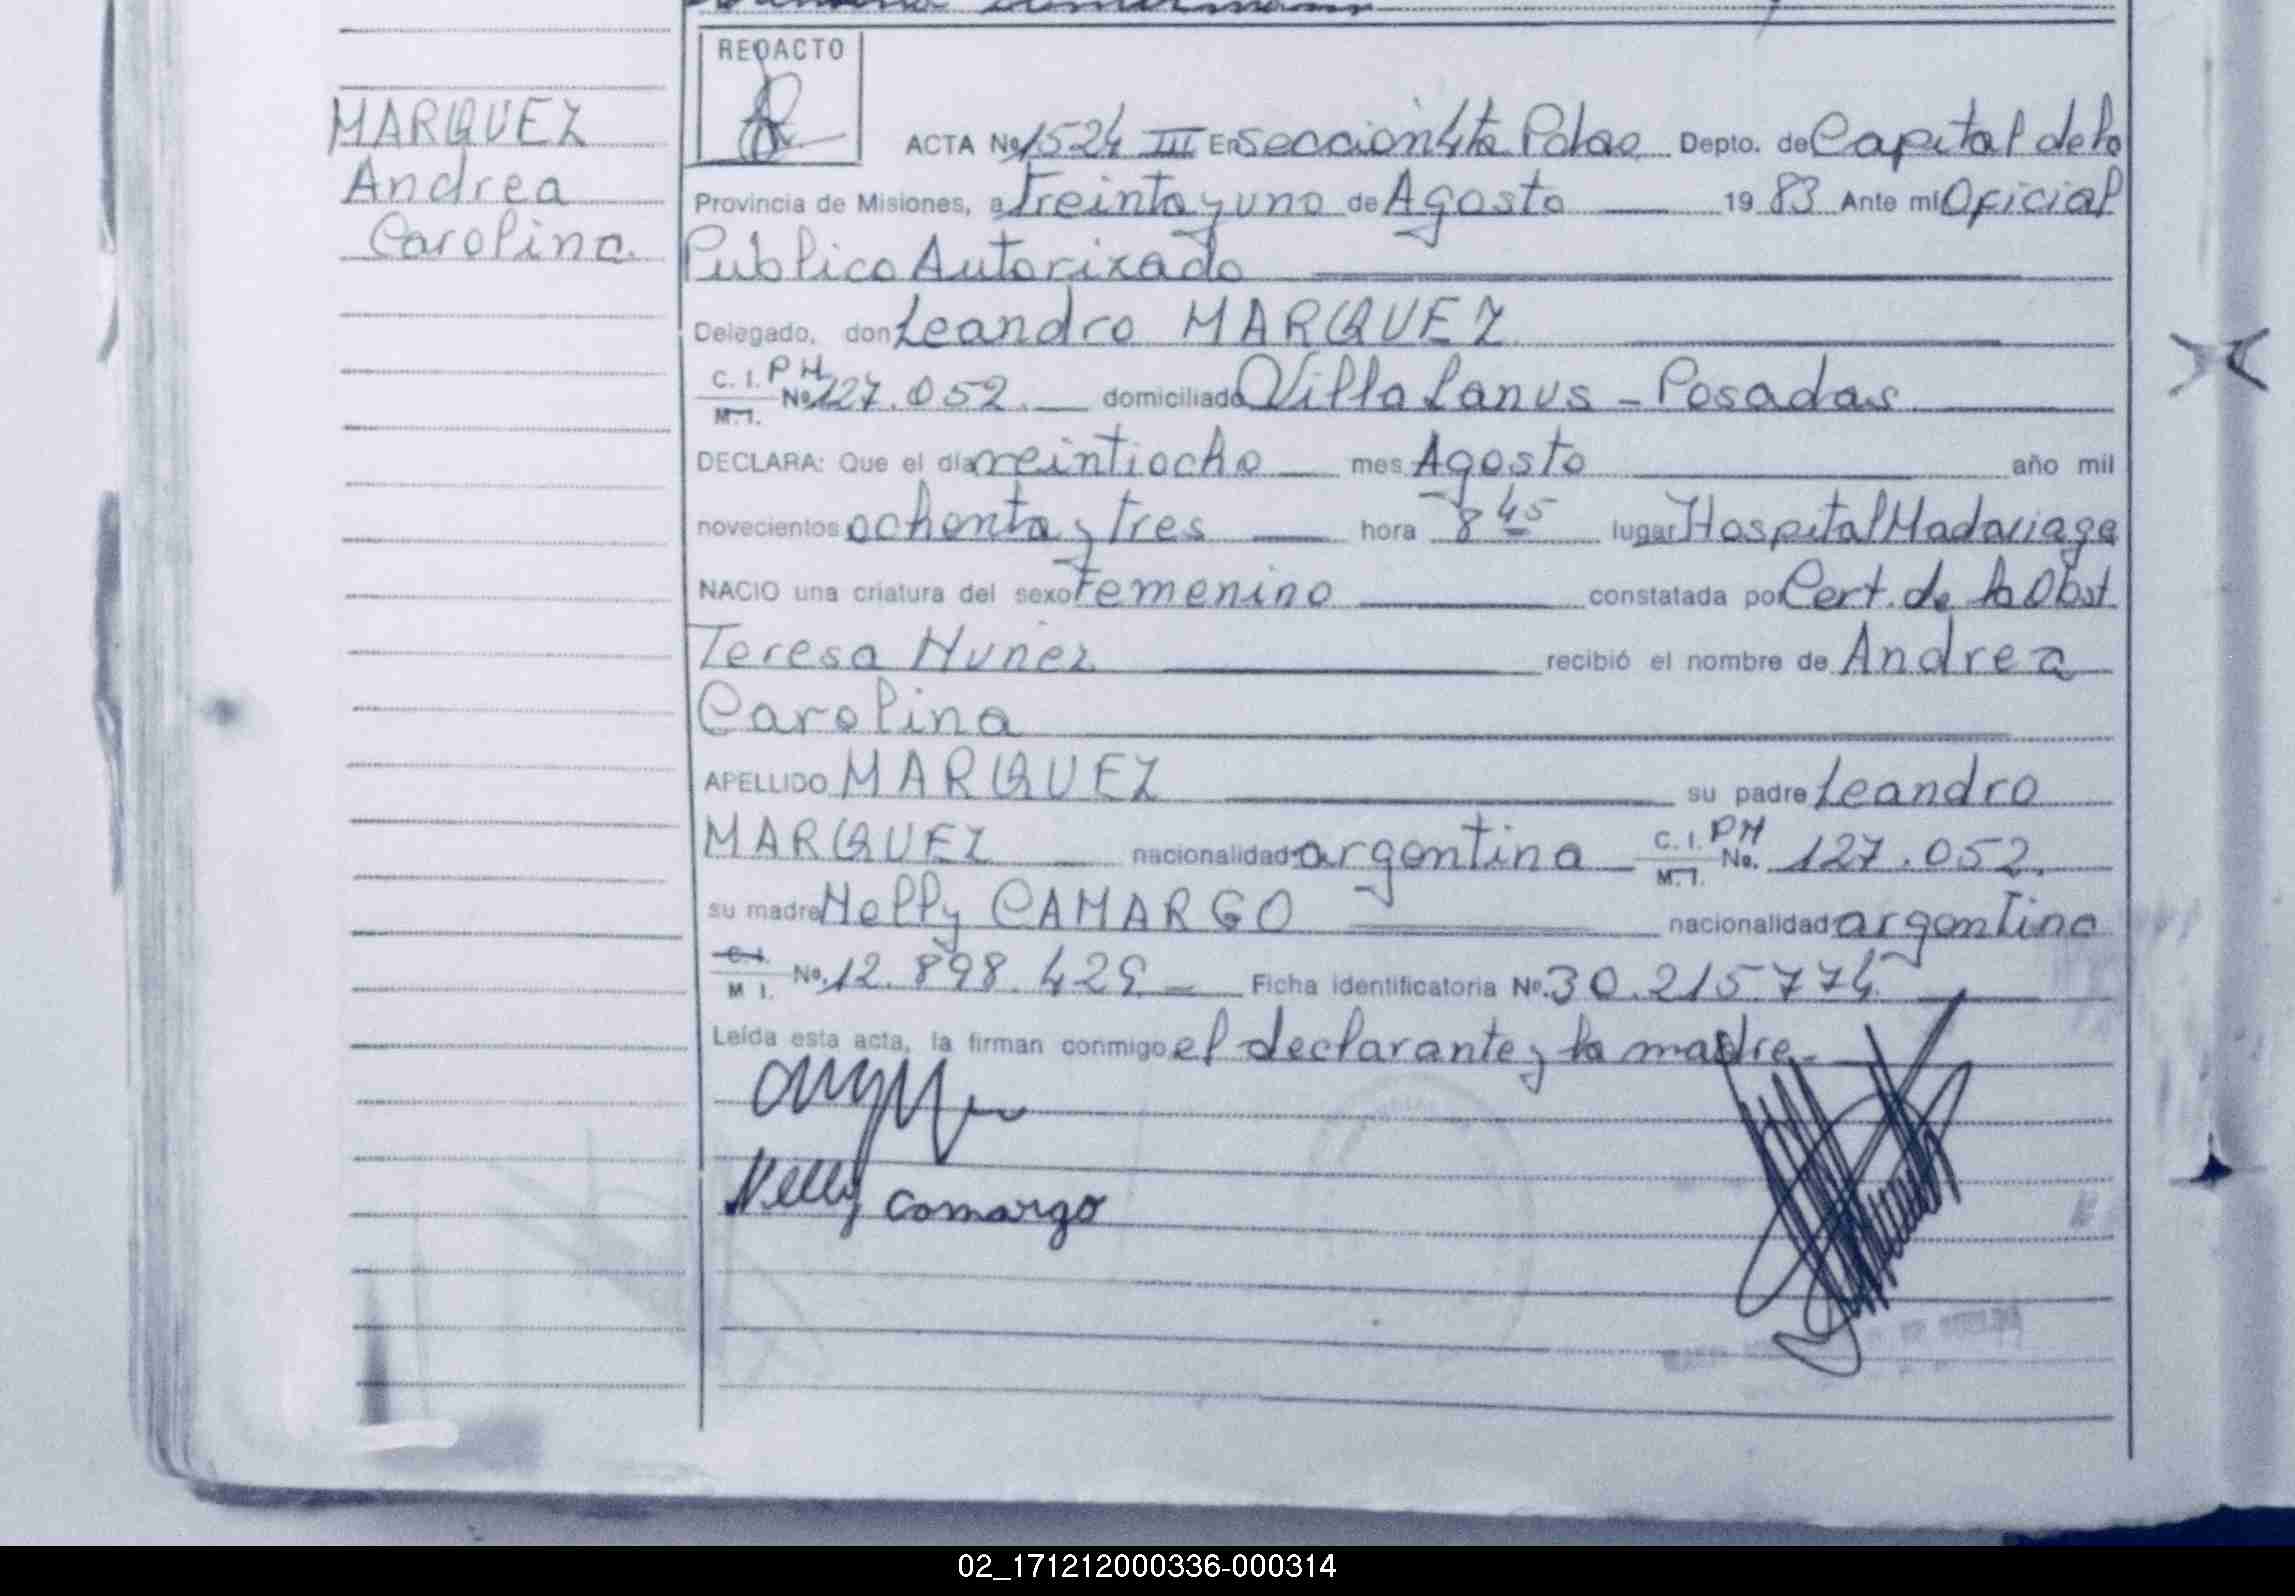 REDACTO
MARQUEZ
Andrea
Carolina.
ACTA Nº 1524 III En Sección 4ta Pdas Depto. de Capital de la
Provincia de Misiones, a Treinta y uno de Agosto 19 83 Ante mi Oficial
Publico Autorizado
Delegado, don Leandro MARQUEZ
C. I. PM
M. I. Nº 127.052. domiciliado Villa Lanus - Posadas
DECLARA: Que el día veintiocho mes Agosto año mil
novecientos ochenta y tres hora 8 45 lugar Hospital Madariaga
NACIO una criatura del sexo Femenino constatada por Cert. de la Obst.
Teresa Nuñez recibió el nombre de Andrea
Carolina
APELLIDO MARQUEZ su padre Leandro
MARQUEZ nacionalidad argentina C. I. PM M. I. No. 127.052.
su madre Nelly CAMARGO nacionalidad argentina
C. I.
M I. Nº. 12.898.429 Ficha identificatoria Nº. 30.215.774
Leída esta acta, la firman conmigo el declarante y la madre.
Nelly Camargo
02_171212000336-000314